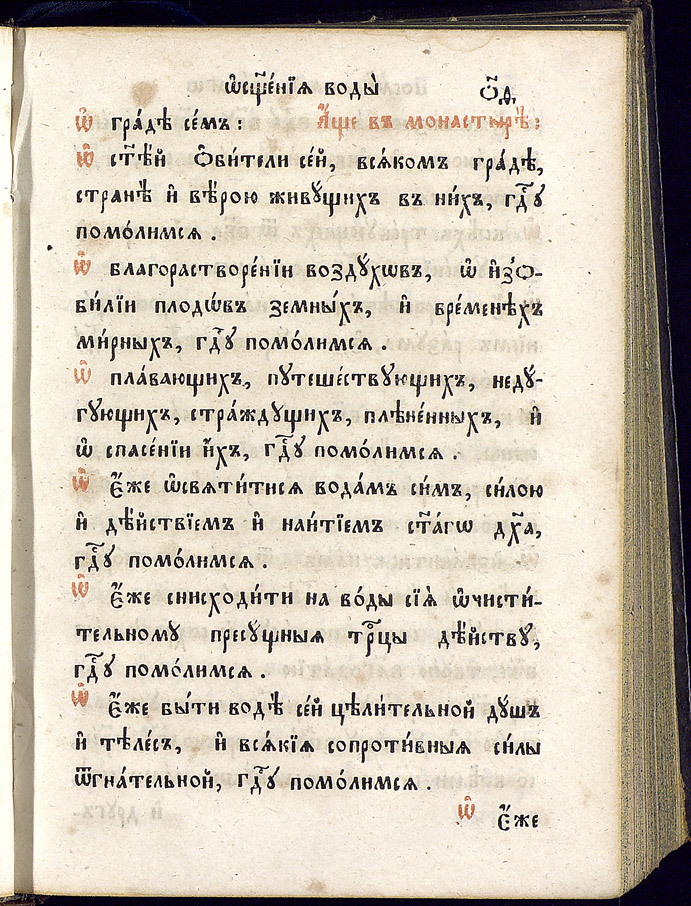 ѡ҆сщ҃е́нїѧ воды̀ ѻ҃д.
Ѽ гра́дѣ се́мъ: А҆́ще въ монастырѣ̀:
Ѽ ст҃ѣ́й ѻ҆би́тели се́й, всѧ́комъ гра́дѣ,
странѣ̀ и҆ вѣ́рою живꙋ́щихъ въ ни́хъ, гдⷭ҇ꙋ
помо́лимсѧ .
Ѽ благорастворе́нїи воздꙋ́хѡвъ, ѡ҆ и҆зѻ-
би́лїи плодѡ́въ земны́хъ, и҆ вре́менѣхъ
ми́рныхъ, гдⷭ҇ꙋ помо́лимсѧ .
Ѽ пла́вающихъ, пꙋтеше́ствꙋющихъ, недꙋ́-
гꙋющихъ, стра́ждꙋщихъ, плѣне́нныхъ, и҆
ѡ҆ спасе́нїи и҆́хъ, гдⷭ҇ꙋ помо́лимсѧ .
Ѽ Є҆́же ѡ҆свѧти́тисѧ вода́мъ си́мъ, си́лою
и҆ дѣ́йствїемъ и҆ наи́тїемъ ст҃а́гѡ дх҃а,
гдⷭ҇ꙋ помо́лимсѧ .
Ѽ Є҆́же снисходи́ти на во́ды сїѧ̀ ѡ҆чисти́-
тельномꙋ пресꙋ́щныѧ трⷪ҇цы дѣ́йствꙋ,
гдⷭ҇ꙋ помо́лимсѧ .
Ѽ Є҆́же бы́ти водѣ̀ се́й цѣли́тельной дꙋ́шъ
и҆ тѣле́съ, и҆ всѧ́кїѧ сопроти́вныѧ си́лы
ѿгна́тельной, гдⷭ҇ꙋ помо́лимсѧ .
Ѽ Є҆́же